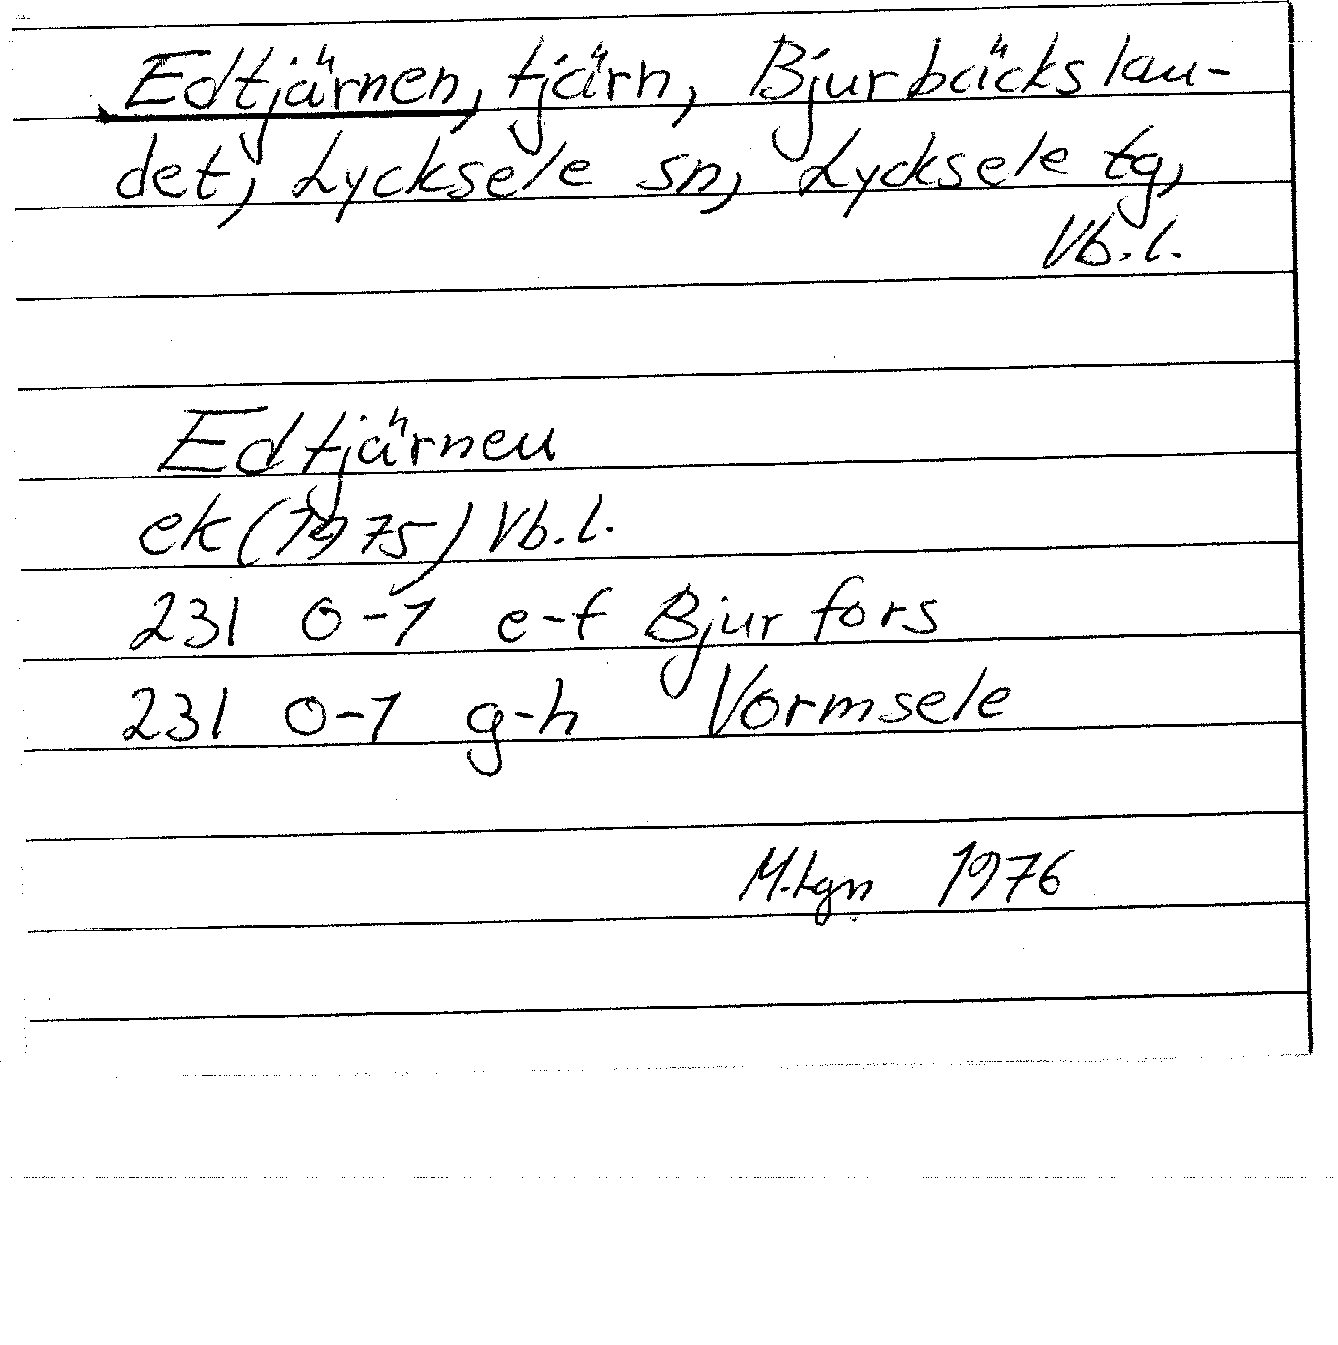 Edtjärnen, tjärn, Bjurbäckslan-
det, Lycksele sn, Lycksele tg,
Vb.l.
Edtjärnen
ek (1975) Vb.l.
23I 0-1 e-f Bjurfors
23I 0-1 g-h Vormsele
M.tgn 1976